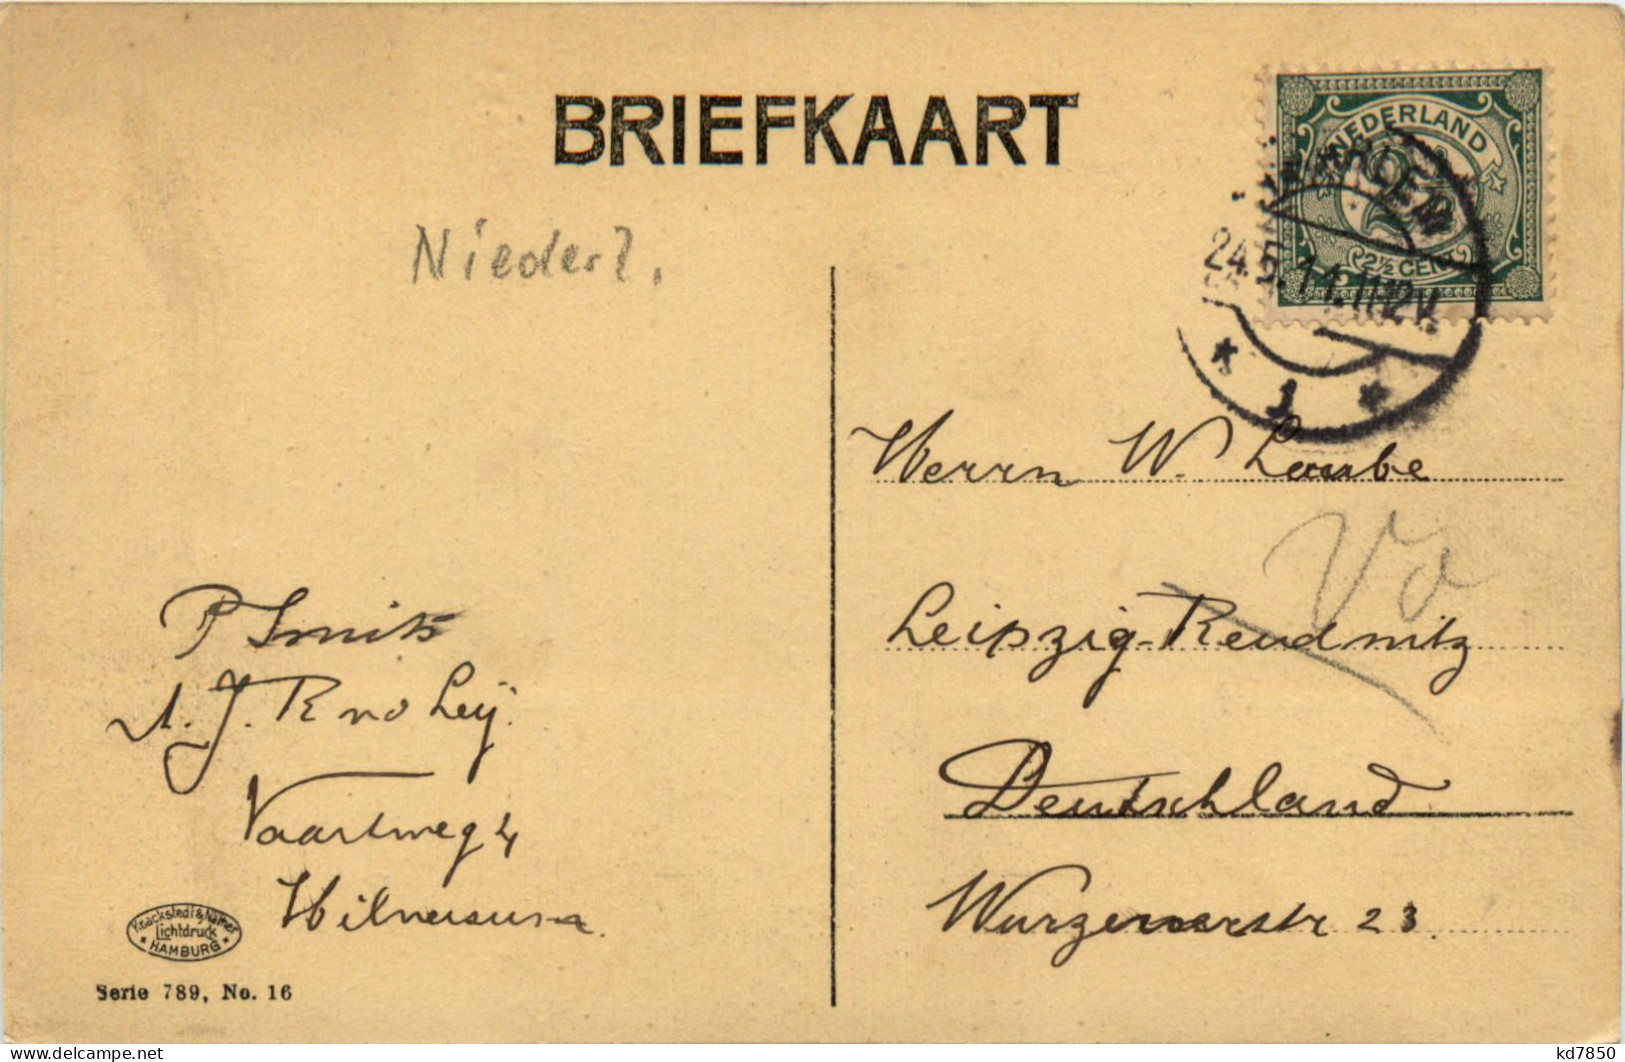 BRIEFKAART
NEDERLAND
2½ CENT
24. 11-12V.
1
Niederl.
Herrn W. Laube
Vo
Leipzig-Reudnitz
Deutschland
Wurzenerstr 23.
P Smits
A. J. Knoleij.
Vaartweg 4
Hilversum.
Knackstedt & Näther
Lichtdruck
HAMBURG
Serie 789, No. 16
kd7850